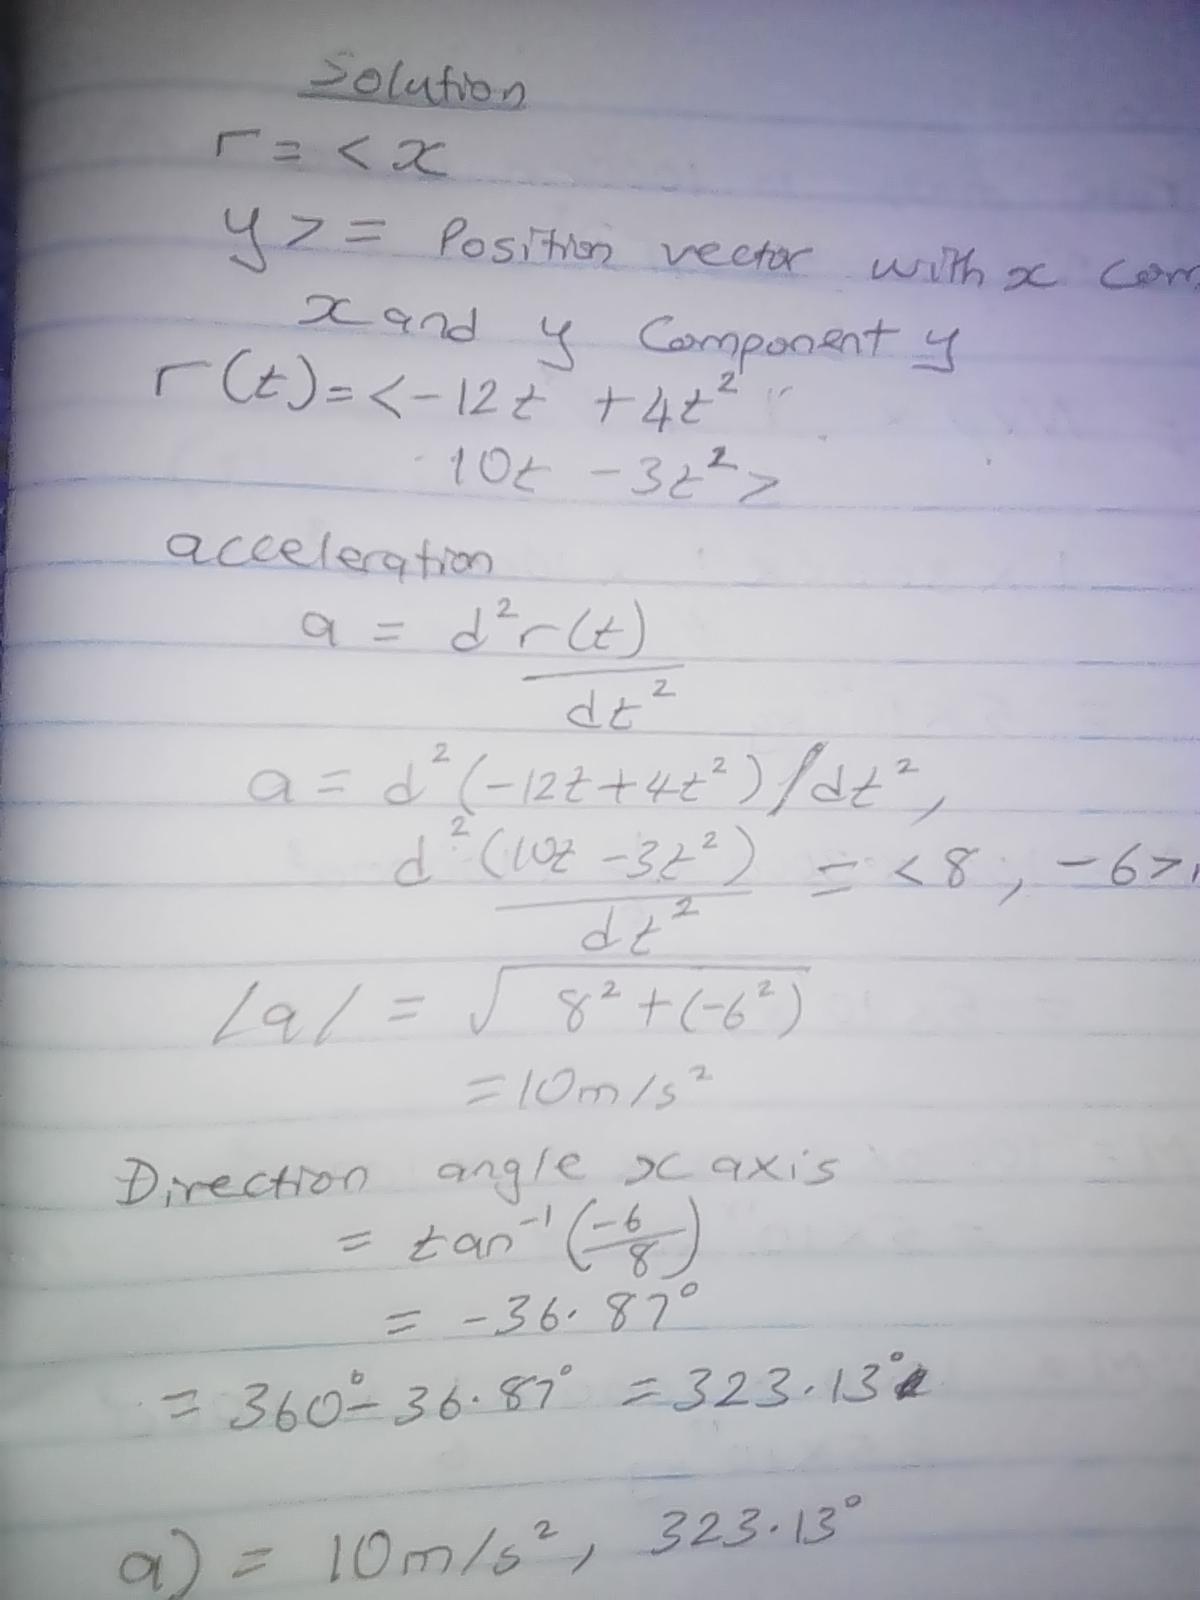 Solution
r = < x
y > = Position vector with x com
x and y Component y
r(t) = < -12t + 4t²
10t - 3t² >
acceleration
a = d²r(t)
dt²
a = d²(-12t + 4t²)/dt²,
d²(10t - 3t²) = < 8, -6 >
dt²
/a/ = √8² + (-6²)
= 10m/s²
Direction angle x axis
= tan⁻¹(-6/8)
= -36.87°
= 360° - 36.87° = 323.13°
a) = 10m/s², 323.13°